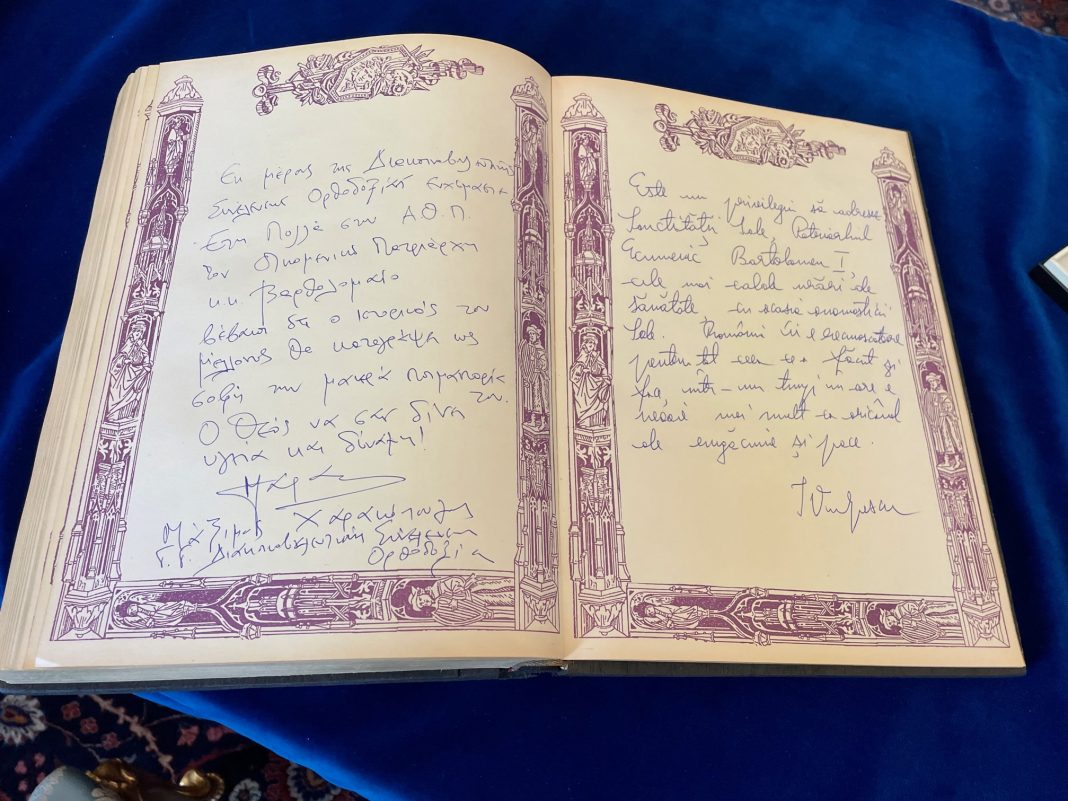 Εκ μέρους της Διακοινοβουλευτικής
Συνέλευσης Ορθοδοξίας ευχόμαστε
Έτη Πολλά στον Α.Θ.Π.
τον Οικουμενικό Πατριάρχη
κ.κ. Βαρθολομαίο
βέβαιοι ότι ο Ιστορικός του
μέλλοντος θα καταγράψει ως
την μακρά ποιμαντορία του.
Ο Θεός να σας δίνει
υγεία και δύναμη!
Μάξιμος Χαρακόπουλος
Γ.Γ. Διακοινοβουλευτικής Συνέλευσης
Ορθοδοξίας
Este un privilegiu să adresez
Sanctității Sale, Patriarhul
Ecumenic Bartolomeu I,
cele mai calde urări de
sănătate cu ocazia onomasticii
Sale. România îi e recunoscătoare
pentru tot ceea ce a făcut și
face, într-un timp în care e
nevoie mai mult ca oricând
de rugăciune și pace.